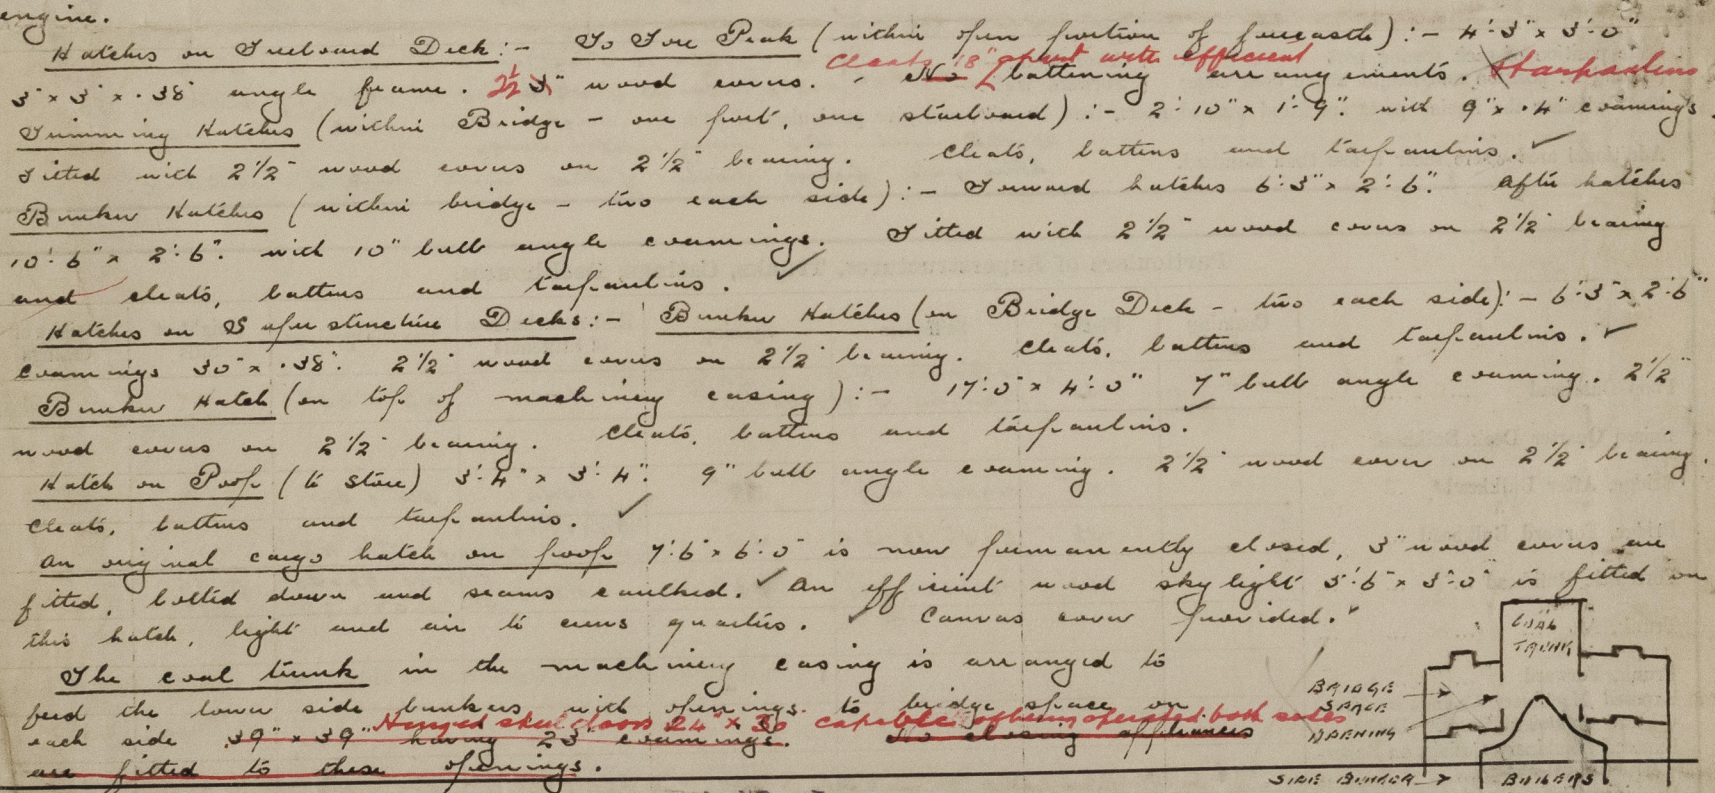 engine.
Hatches on Freeboard Deck:- To Fore Peak (within open portion of forecastle):- 4'.3" x 3'.0"
Cleats 18" apart with efficient
3" x 3" x .38" angle frame. 2½ 3" wood covers. No battening arrangements. tarpaulins
Trimming Hatches (within Bridge - one port, one starboard):- 2'.10" x 1'.9". with 9" x .4" coamings.
Fitted with 2½" wood covers on 2½" bearing. Cleats, battens and tarpaulins. ✓
Bunker Hatches (within bridge - two each side):- Forward hatches 6'.3" x 2'.6". After hatches
10'.6" x 2'.6". with 10" bulb angle coamings. Fitted with 2½" wood covers on 2½" bearing
and cleats, battens and tarpaulins. ✓
Hatches on Superstructure Decks:- Bunker Hatches (on Bridge Deck - two each side):- 6'.3" x 2'.6"
coamings 30" x .38". 2½" wood covers on 2½" bearing. Cleats, battens and tarpaulins. ✓
Bunker Hatch (on top of machinery casing):- 17'.0" x 4'.0" 7" bulb angle coaming. 2½"
wood covers on 2½" bearing. Cleats, battens and tarpaulins. ✓
Hatch on Poop (to store) 3'.4" x 3'.4". 9" bulb angle coaming. 2½" wood cover on 2½" bearing.
Cleats, battens and tarpaulins. ✓
An original cargo hatch on poop 7'.6" x 6'.0" is now permanently closed, 3" wood covers are
fitted, bolted down and seams caulked. ✓ An efficient wood skylight 3'.6" x 3'.0" is fitted on
this hatch, light and air to crews quarters. ✓ Canvas cover provided. ✓
The coal trunk in the machinery casing is arranged to
feed the lower side bunkers with openings to bridge space on
Hinged steel doors 24" x 30" capable of being operated both sides
each side 39" x 39" having 23" coamings. No closing appliances
are fitted to these openings.
COAL
TRUNK
BRIDGE
SPACE
OPENING
SIDE BUNKER
BOILERS